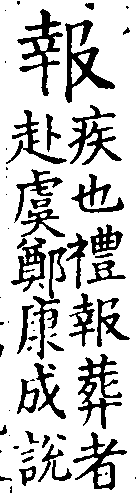 報
疾也禮報葬者
赴虞鄭康成說